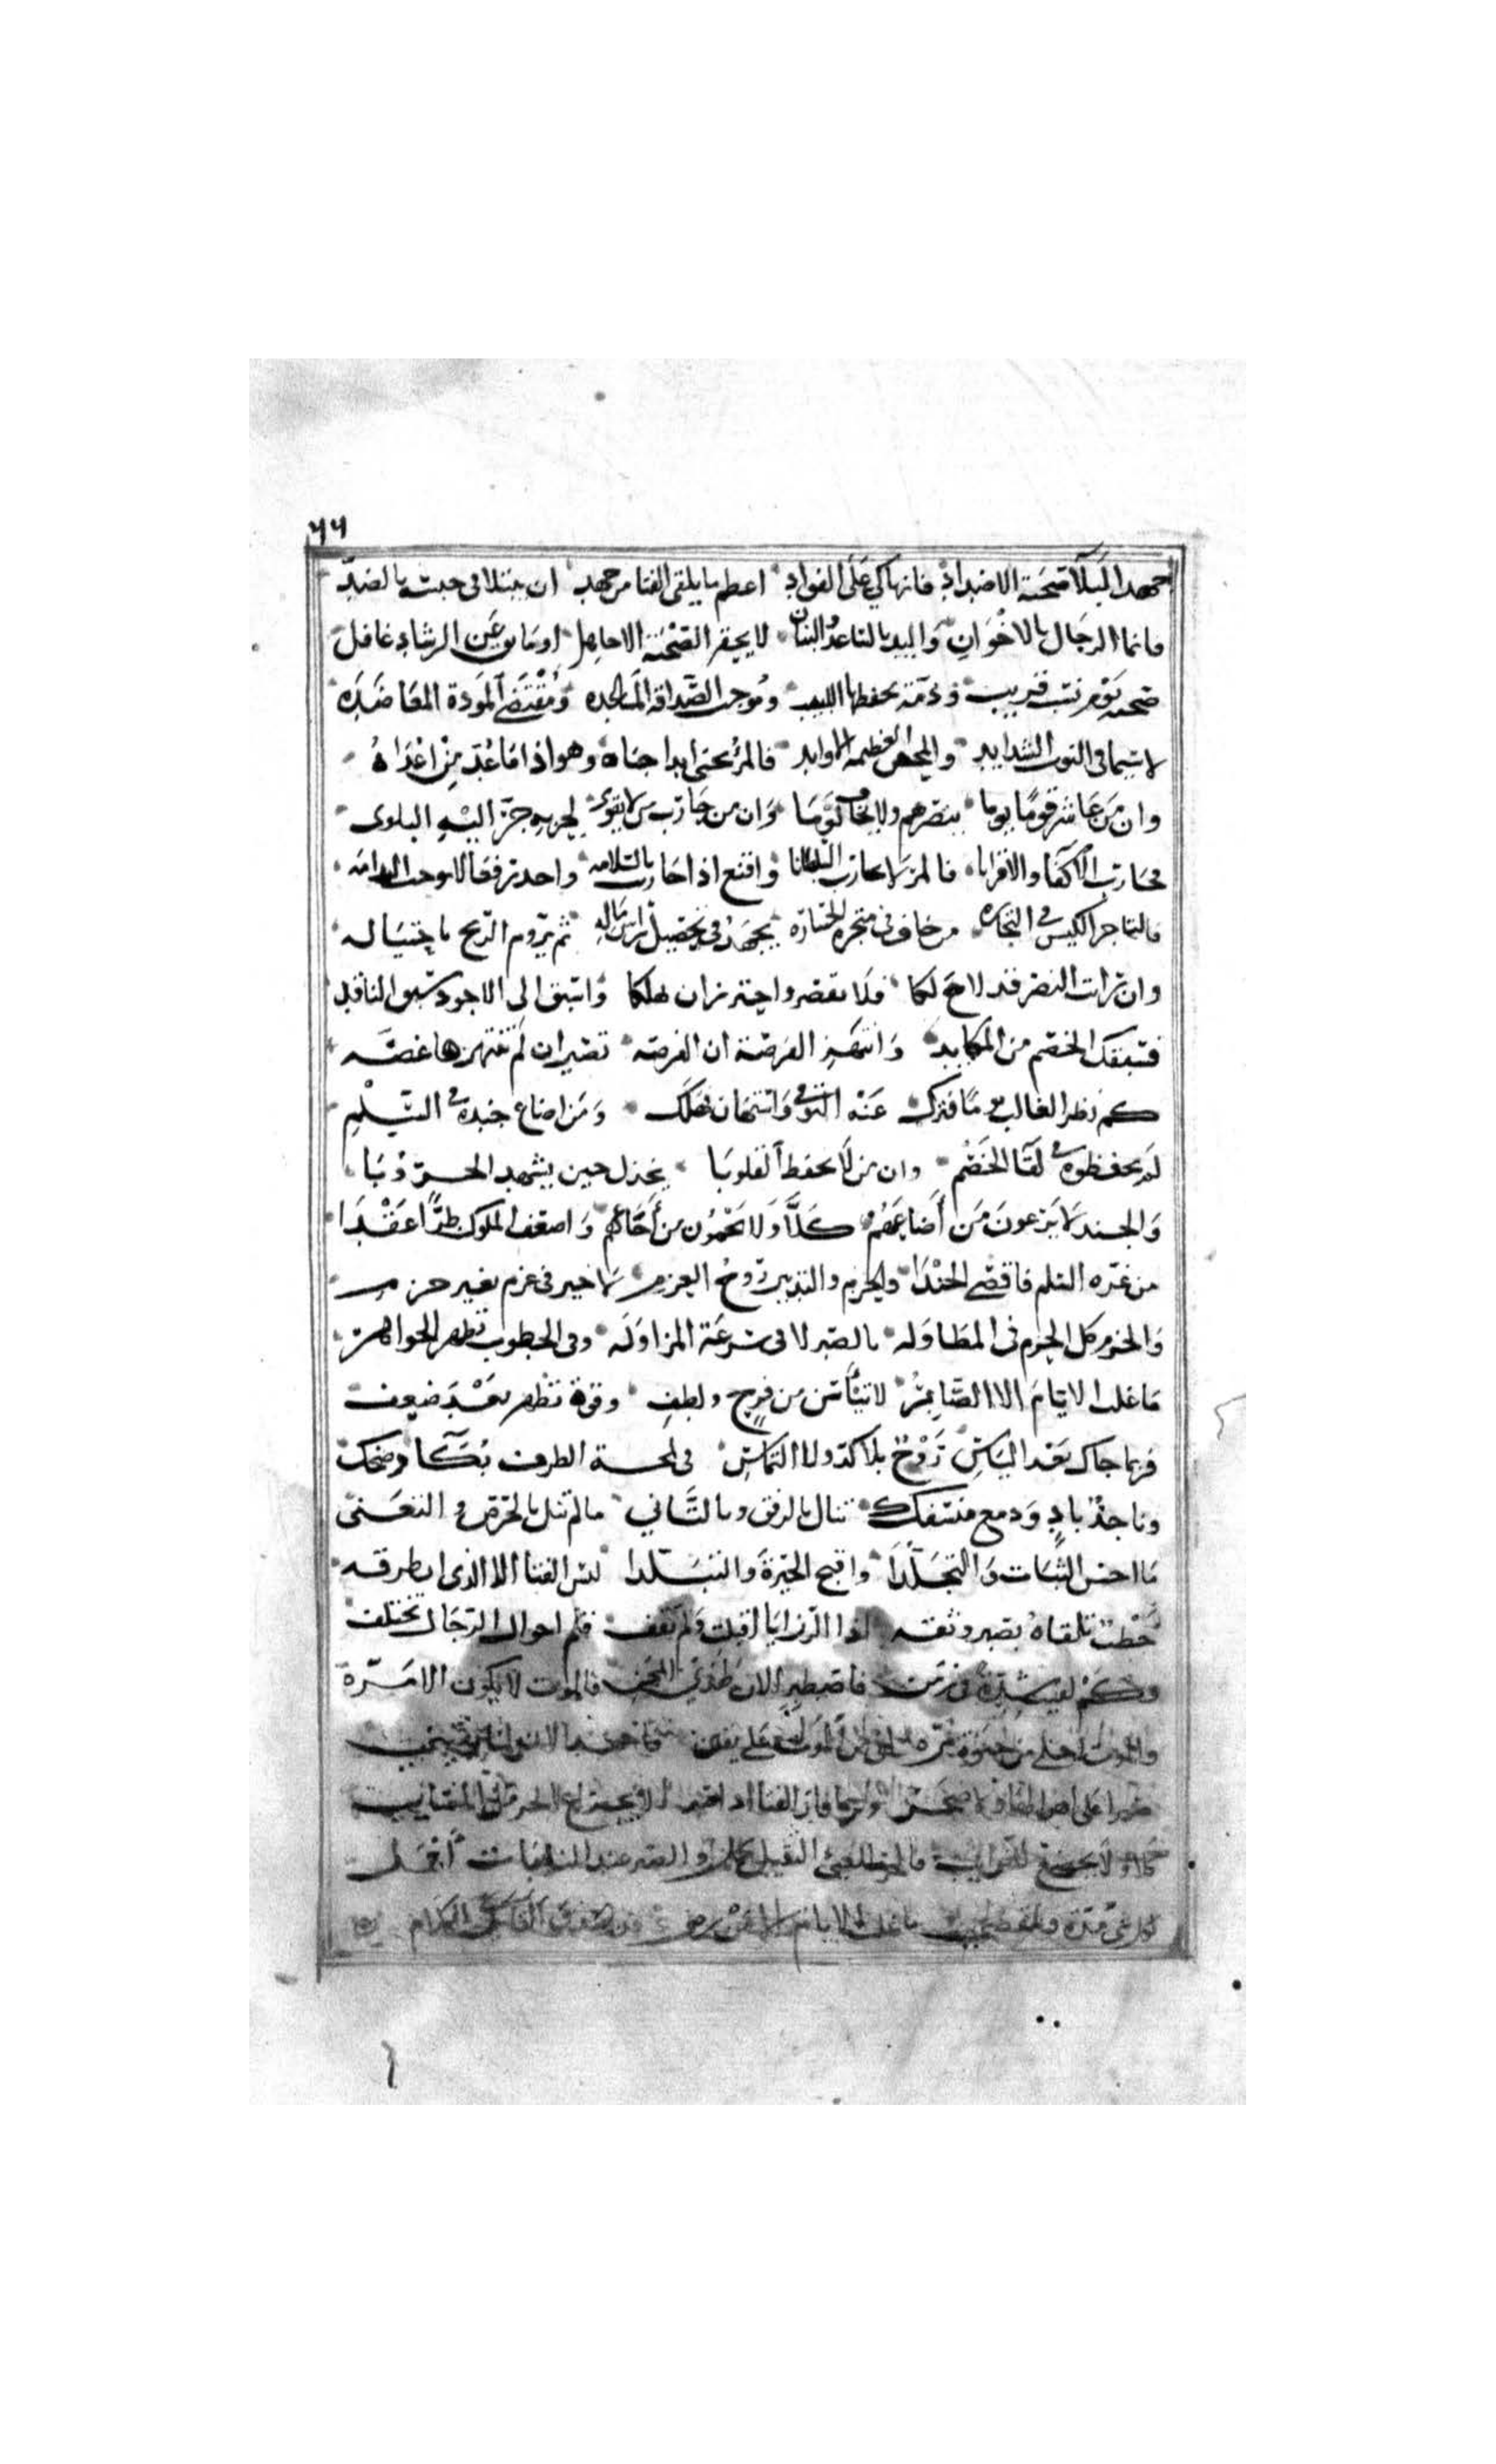 ٦٦
جهد البلا صحبة الاضداد فانها كي على الفواد اعظم ما يلقى الفتا من جهد ان يبتلا في حبسه بالضد
فانما الرجال بالاخوان واليد بالساعد والبنان لا يحقر الصحبة الا جاهل او مايق عن الرشاد غافل
صحبة يوم نسب قريب وذمة يحفظها اللبيب وموجب الصداقة المساعده ومقتضى المودة المعاضده
لا سيما في النوب الشدايد والمحن العظيمة الاوابد فالمرء يحيى ابدا اخاه وهو اذا ما عد من اعداه
وان من عاشر قوما يوما ينصرهم ولا يخاف لوما وان من حارب من لا يقوى لحربه جر اليه البلوى
فحارب الاكفا والاقرانا فالمرء لا يحارب السلطانا واقنع اذا حاربت بالسلامه واحذر فعالا توجب الندامه
فالتاجر الكيس في التجاره من خاف في متجره الخساره يجهد في تحصيل راس ماله ثم يروم الربح باحتياله
وان رايت النصر قد لاح لكا فلا تقصر واحترز ان تهلكا واسبق الى الاجود سبق الناقد
فسبقك الخصم من المكايد وانتهز الفرصة ان الفرصه تصير ان لم تنتهزها غصه
كم بطر الغالب يوما فترك عنه التوقي واستهان فهلك ومن اضاع جنده في السلم
لم يحفظوه في لقا الخصم وان من لا يحفظ القلوبا يخذل حين يشهد الحروبا
والجند لا يرعون من اضاعهم كلا ولا يحمون من اجاعهم واضعف الملوك طرا عقدا
من غره السلم فاقصى الجندا والحزم والتدبير روح العزم لا خير في عزم بغير حزم
والحزم كل الحزم في المطاوله بالصبر لا في سرعة المزاوله وفي الخطوب تظهر الجواهر
ما غلب الايام الا الصابر لا تيأسن من فرج ولطف وقوة تظهر بعد ضعف
فربما جاك بعد الياس روح بلا كد ولا التماس في لمحة الطرف بكاء وضحك
وناجذ باد ودمع منسفك تنال بالرفق وبالتاني ما لم تنل بالحرص والتعني
ما احسن الثبات والتجلدا واقبح الحيرة والتبلدا ليس الفتا الا الذي ان طرقه
خطب تلقاه بصبر وثقه اذا الرزايا اقبلت ولم تقف فثم احوال الرجال تختلف
وكم لقيت شدة في زمن فاصطبر الان لهذي المحن فالموت لا يكون الا مره
والموت احلى من حيوة مره
والصبر عند النايبات اجمل
ما غلب الايام الا من رضي